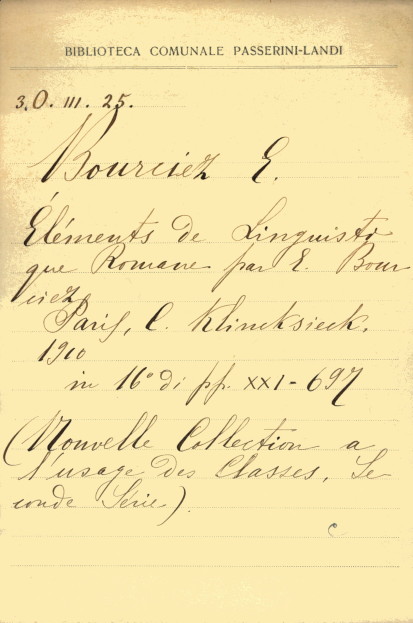 BIBLIOTECA COMUNALE PASSERINI-LANDI
3.O.III.25.
Bourciez E.
Éléments de Linguisti
que Romane par E. Bour
ciez
Paris, C. Klincksieck.
1910
in 16° di pp. XXI-697
(Nouvelle Collection a
l'usage des Classes. Se
conde Série).
c